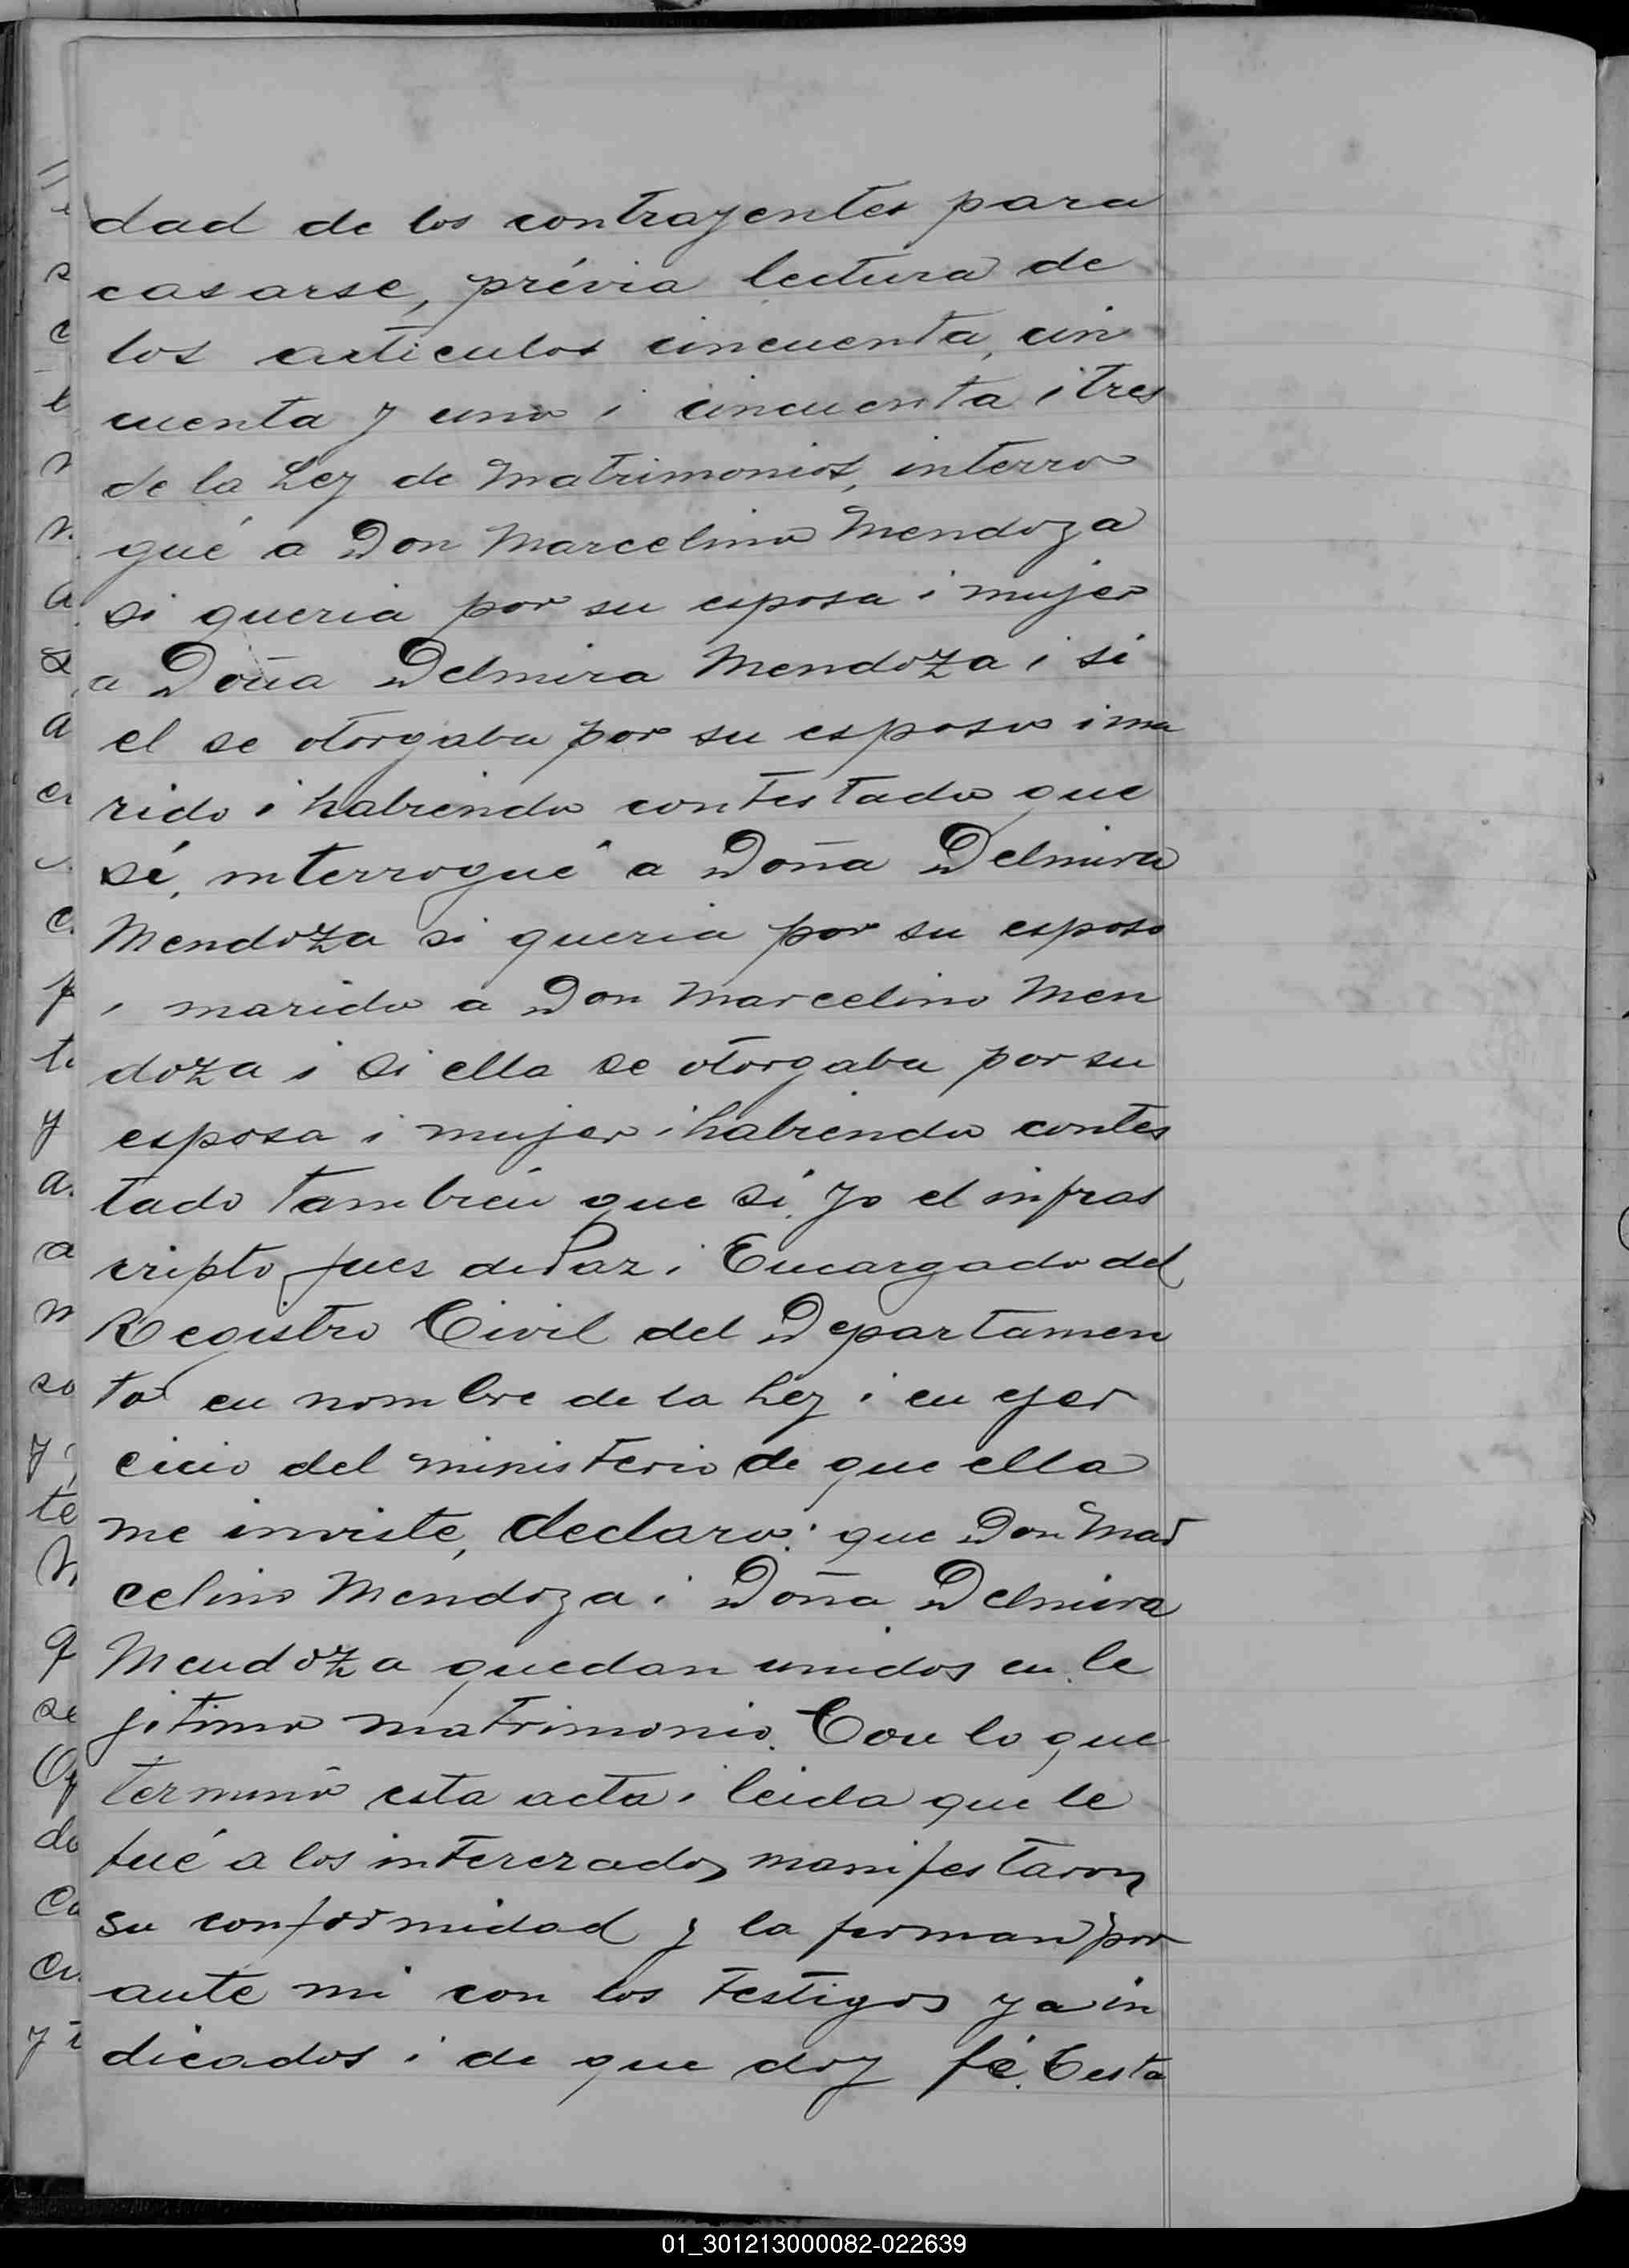 dad de los contrayentes para
casarse, prévia lectura de
los articulos cincuenta, cin
cuenta y uno i cincuenta i tres
de la Ley de Matrimonios, interro
gué a Don Marcelino Mendoza
si queria por su esposa i mujer
a Doña Delmira Mendoza i si
el se otorgaba por su esposo i ma
rido i habiendo contestado que
sí, interrogué a Doña Delmira
Mendoza si queria por su esposo
i marido a Don Marcelino Men
doza i si ella se otorgaba por su
esposa i mujer i habiendo contes
tado tambien que sí, yo el infras
cripto Juez de Paz i Encargado del
Registro Civil del Departamen
to en nombre de la Ley i en ejer
cicio del ministerio de que ella
me inviste, declaro: que Don Mar
celino Mendoza i Doña Delmira
Mendoza quedan unidos en le
jitimo matrimonio. Con lo que
terminó esta acta i leida que le
fué a los interezados manifestaron
su conformidad y la firman por
ante mi con los testigos ya in
dicados i de que doy fé. Testa
01_301213000082-022639